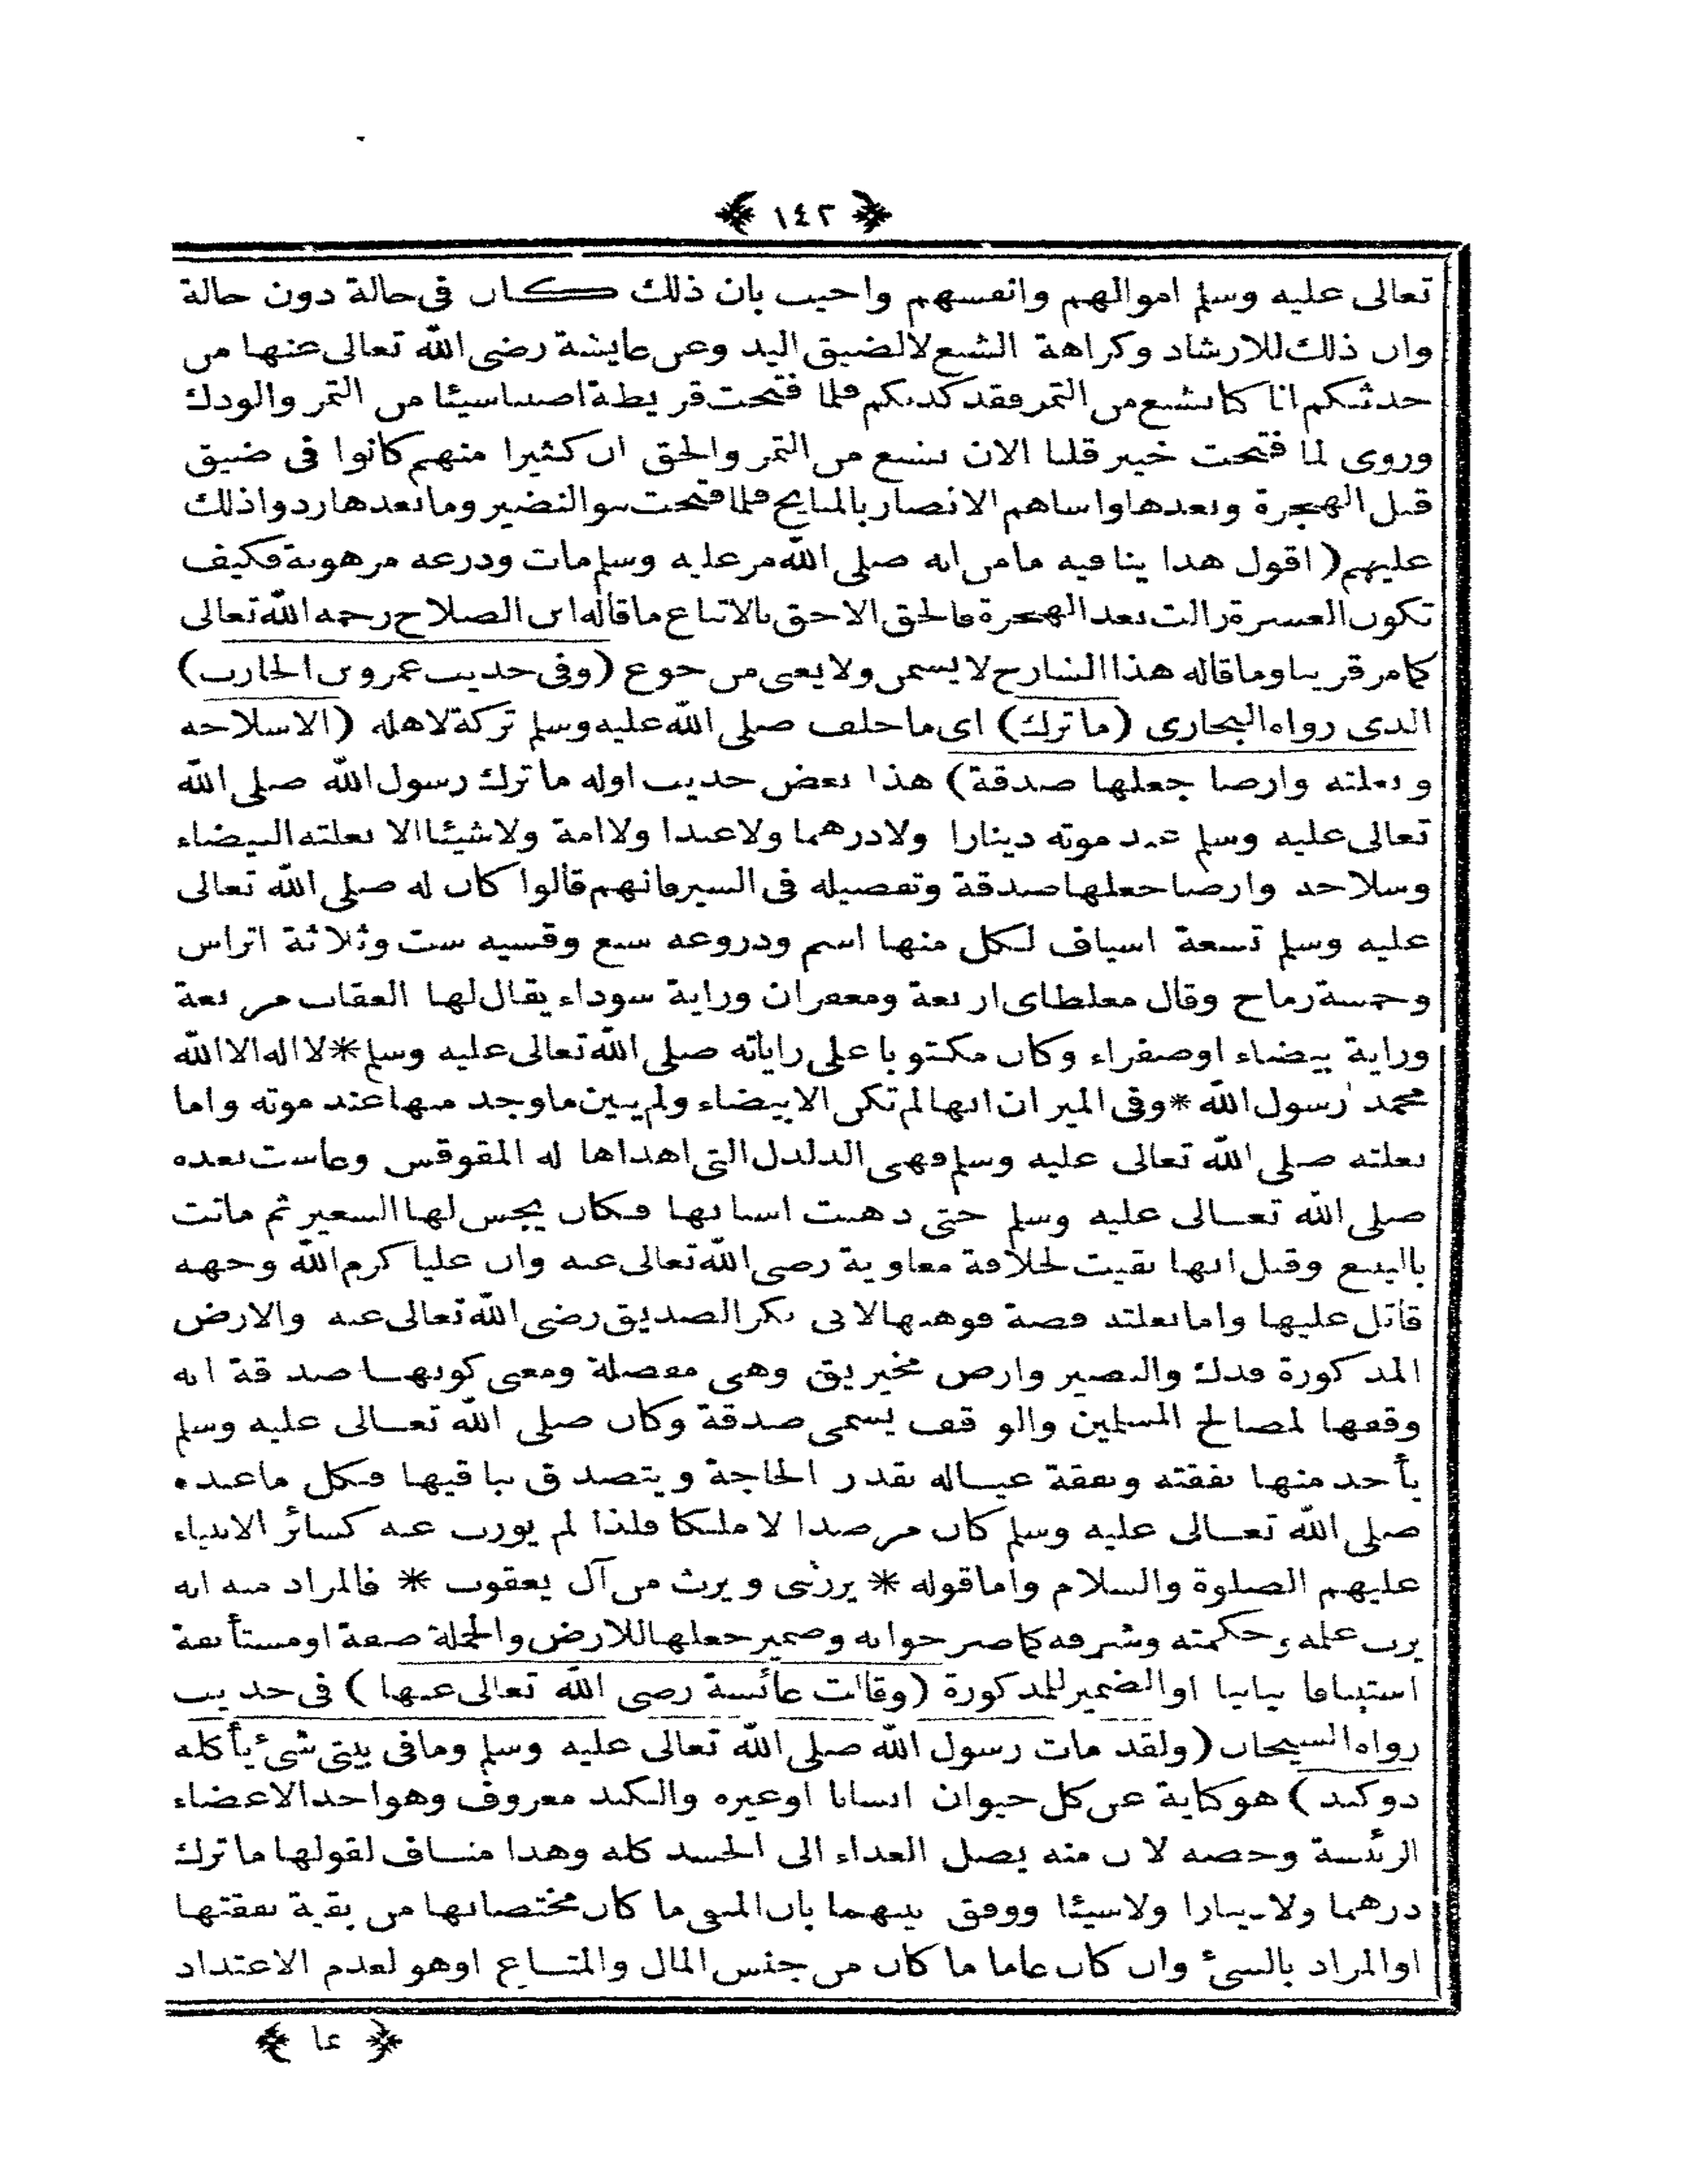 ﴿ ١٤٢ ﴾
تعالى عليه وسلم اموالهم وانفسهم واجيب بان ذلك كان فى حالة دون حالة
وان ذلك للارشاد وكراهة الشبع لالضيق اليد وعن عايشة رضى الله تعالى عنها من
حدثكم انا كنا نشبع من التمر فقد كذبكم فلما فتحت قريظة اصبنا شيئا من التمر والودك
وروى لما فتحت خيبر قلنا الان نشبع من التمر والحق ان كثيرا منهم كانوا فى ضيق
قبل الهجرة وبعدها واساهم الانصار بالمنايح فلما فتحت بنو النضير وما بعدها ردوا ذلك
عليهم (اقول هذا ينافيه ما من انه صلى الله مر عليه وسلم مات ودرعه مرهونة فكيف
تكون العسرة زالت بعد الهجرة فالحق الاحق بالاتباع ما قاله ابن الصلاح رحمه الله تعالى
كما مر قريبا وما قاله هذا الشارح لا يسمن ولا يغنى من جوع (وفى حديث عمرو بن الحارث)
الذى رواه البخارى (ما ترك) اى ما خلف صلى الله عليه وسلم تركة لاهله (الاسلاحه
وبغلته وارضا جعلها صدقة) هذا بعض حديث اوله ما ترك رسول الله صلى الله
تعالى عليه وسلم عند موته دينارا ولا درهما ولا عبدا ولا امة ولا شيئا الا بغلته البيضاء
وسلاحه وارضا جعلها صدقة وتفصيله فى السير فانهم قالوا كان له صلى الله تعالى
عليه وسلم تسعة اسياف لكل منها اسم ودروعه سبع وقسيه ست وثلاثة اتراس
وخمسة رماح وقال مغلطاى اربعة ومغفران وراية سوداء يقال لها العقاب مربعة
وراية بيضاء او صفراء وكان مكتوبا على راياته صلى الله تعالى عليه وسلم * لا اله الا الله
محمد رسول الله * وفى الميزان انها لم تكن الا بيضاء ولم يبين ما وجد منها عند موته واما
بغلته صلى الله تعالى عليه وسلم فهى الدلدل التى اهداها له المقوقس وعاشت بعده
صلى الله تعالى عليه وسلم حتى ذهبت اسنانها فكان يجس لها الشعير ثم ماتت
بالينبع وقيل انها بقيت لخلافة معاوية رضى الله تعالى عنه وان عليا كرم الله وجهه
قاتل عليها واما بغلته فضة فوهبها لابى بكر الصديق رضى الله تعالى عنه والارض
المذكورة فدك والنضير وارض مخيريق وهى مفصلة ومعنى كونها صدقة انه
وقفها لمصالح المسلمين والوقف يسمى صدقة وكان صلى الله تعالى عليه وسلم
يأخذ منها نفقته ونفقة عياله بقدر الحاجة ويتصدق بباقيها فكل ما عنده
صلى الله تعالى عليه وسلم كان مرصدا لا ملكا فلذا لم يورث عنه كسائر الانبياء
عليهم الصلوة والسلام واما قوله * يرثنى ويرث من آل يعقوب * فالمراد منه انه
يرث علمه وحكمته وشرفه كما صر حوا به وضمير جعلها للارض والجملة صفة او مستأنفة
استينافا بيانيا او الضمير للمذكورة (وقالت عائشة رضى الله تعالى عنها) فى حديث
رواه الشيخان (ولقد مات رسول الله صلى الله تعالى عليه وسلم وما فى بيتى شئ يأكله
ذو كبد) هو كناية عن كل حيوان انسانا او غيره والكبد معروف وهو احد الاعضاء
الرئسة وخصه لان منه يصل الغذاء الى الجسد كله وهذا مناف لقولها ما ترك
درهما ولا دينارا ولا شيئا ووفق بينهما بان المنفى ما كان مختصا بها من بقية نفقتها
او المراد بالشئ وان كان عاما ما كان من جنس المال والمتاع او هو لعدم الاعتداد
﴿ عا ﴾